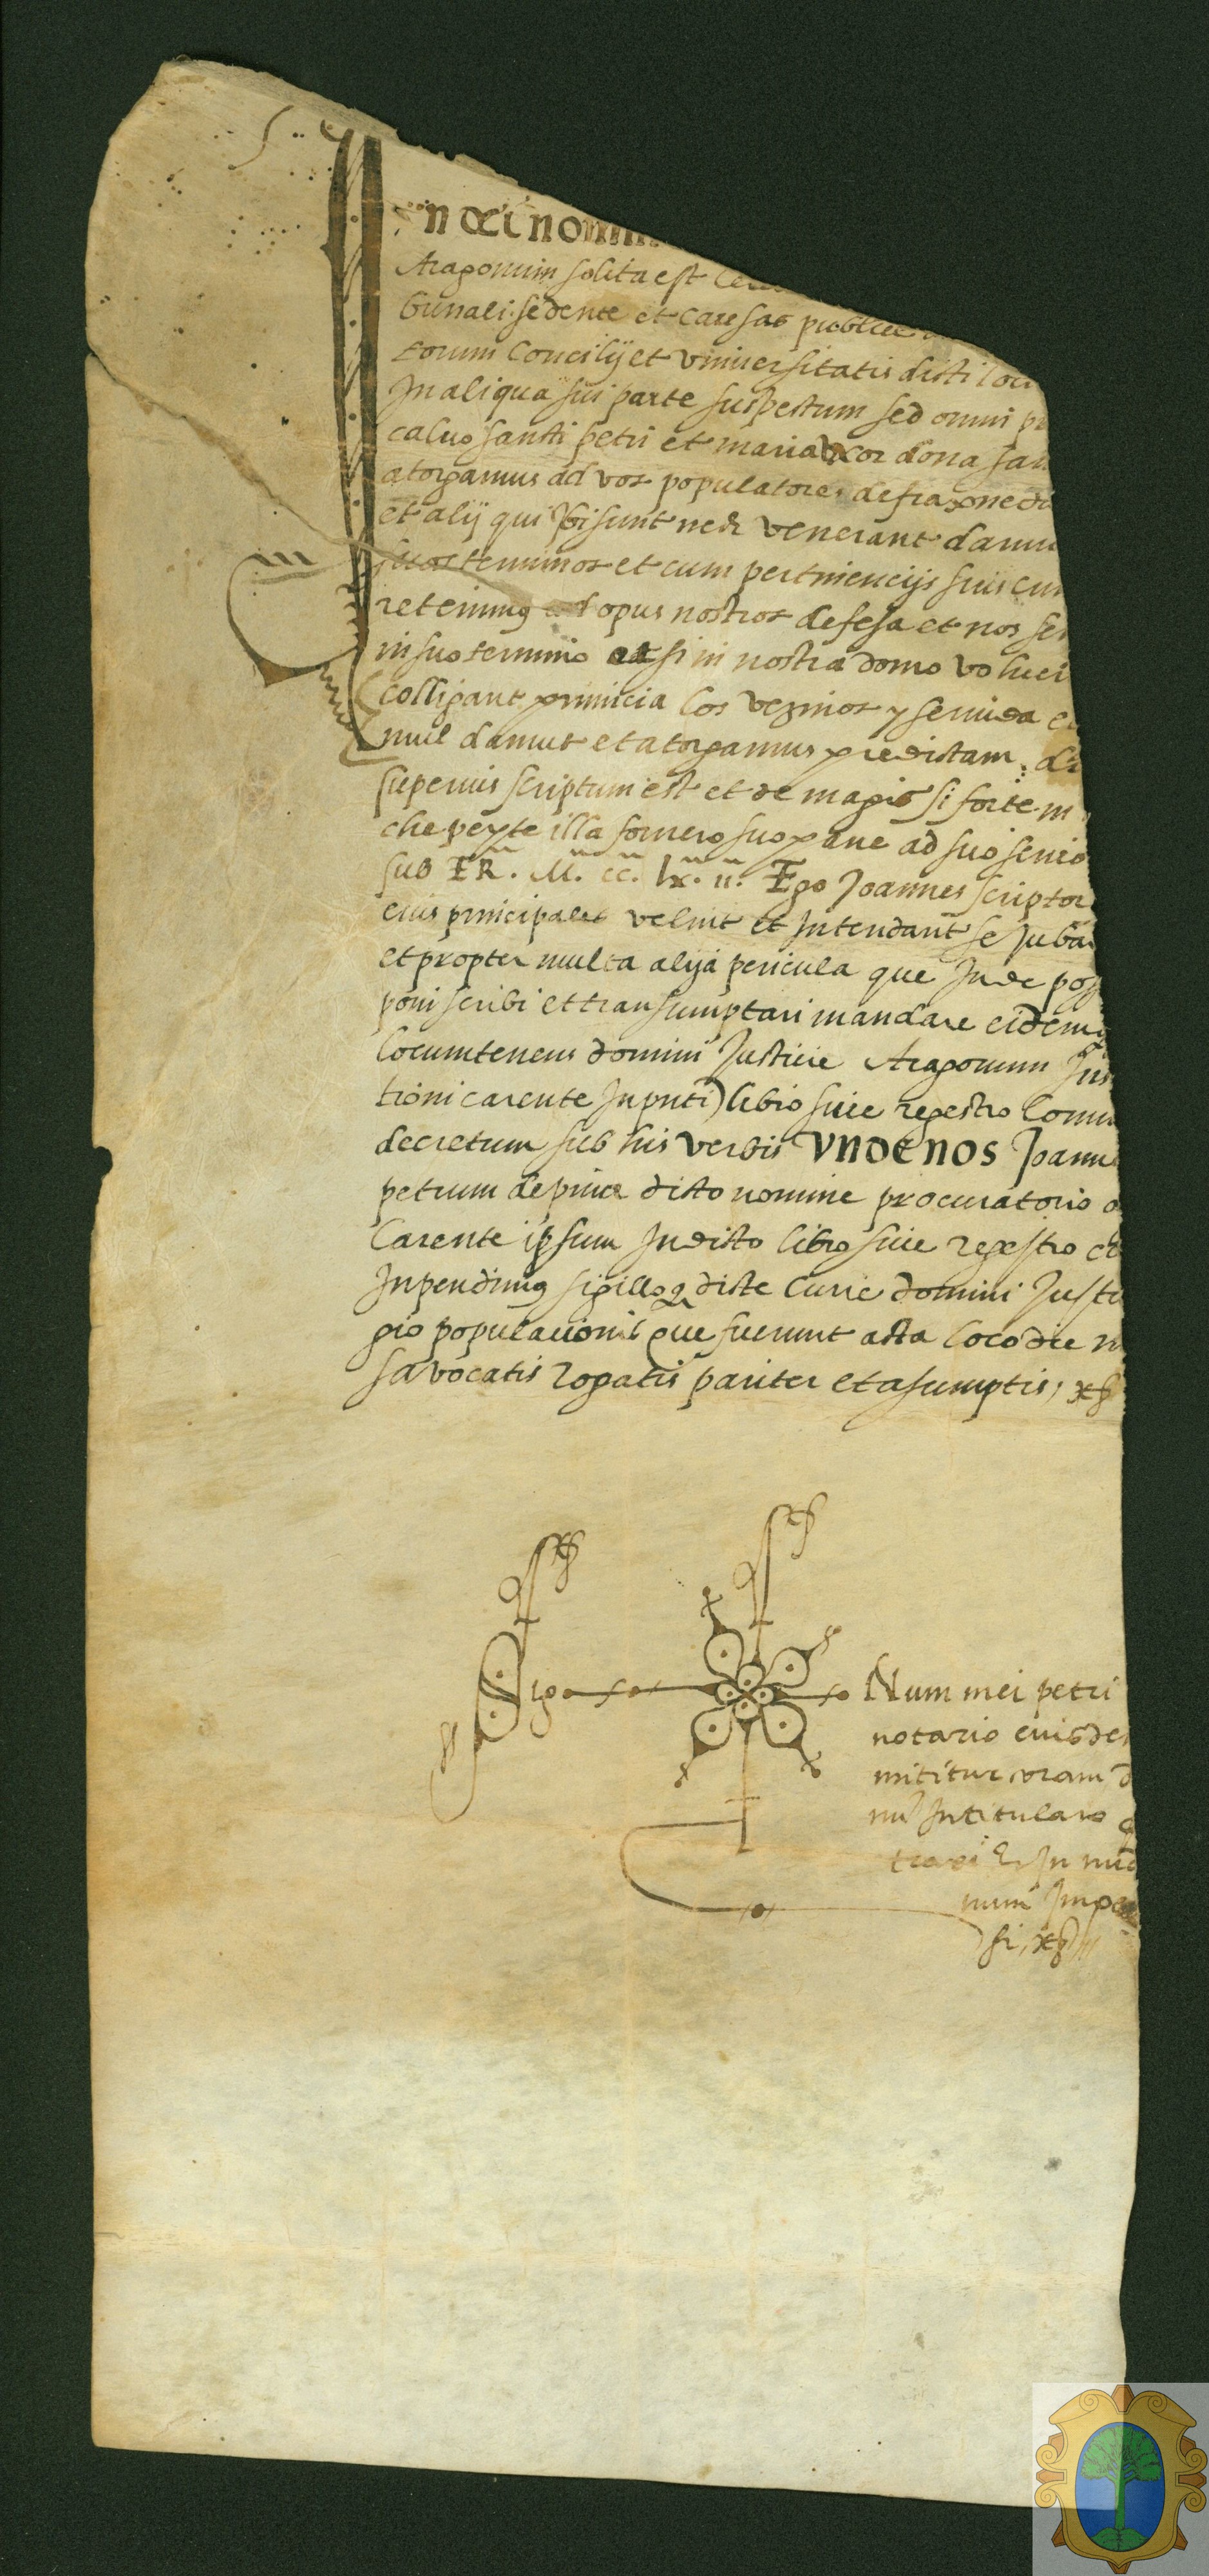 In dei nomin
Aragonum solita est
bunali sedente et causas publice
torum Concilij et vniuersitatis dicti loci
In aliqua sui parte suspectum sed omni
caluo santi petri et maria vxor dona
atorgamus ad vos populatores de fraxoneda
et alij qui ibi sunt uel venerant damus
suos terminos et cum pertinencijs suis cum
retenimus ad opus nostros defesa et nos
in suo termino et si in nostra domo
colligant primicia los vezinos y seruida
mul damus et atorgamus predictam
superius scriptum est et de magis si forte in
che peyte illa fornero suo pane ad suo senio
sub ER. M. cc. lx. ii. Ego Joannes scriptor
eius principales velint et Intendant se Iubar
et propter multa alija pericula que Inde pos
poni scribi et transumptari mandare eidemq
locumtenens domini Justicie Aragonum Ins
tioni carente In pnti) libro siue regestro Comu
decretum sub his verbis VNDE NOS Joann
petrum de pina dicto nomine procuratorio
Carente ipsum In dicto libro siue regestro
Inpendimus sigilloq dicte Curie domini Justi
gio populationis que fuerunt acta loco die
sa vocatis rogatis pariter et asumptis;
Sig
Num mei petri
notario eiusde
mititur coram
nu Intitulato
traxi Et In
num Impo
si,